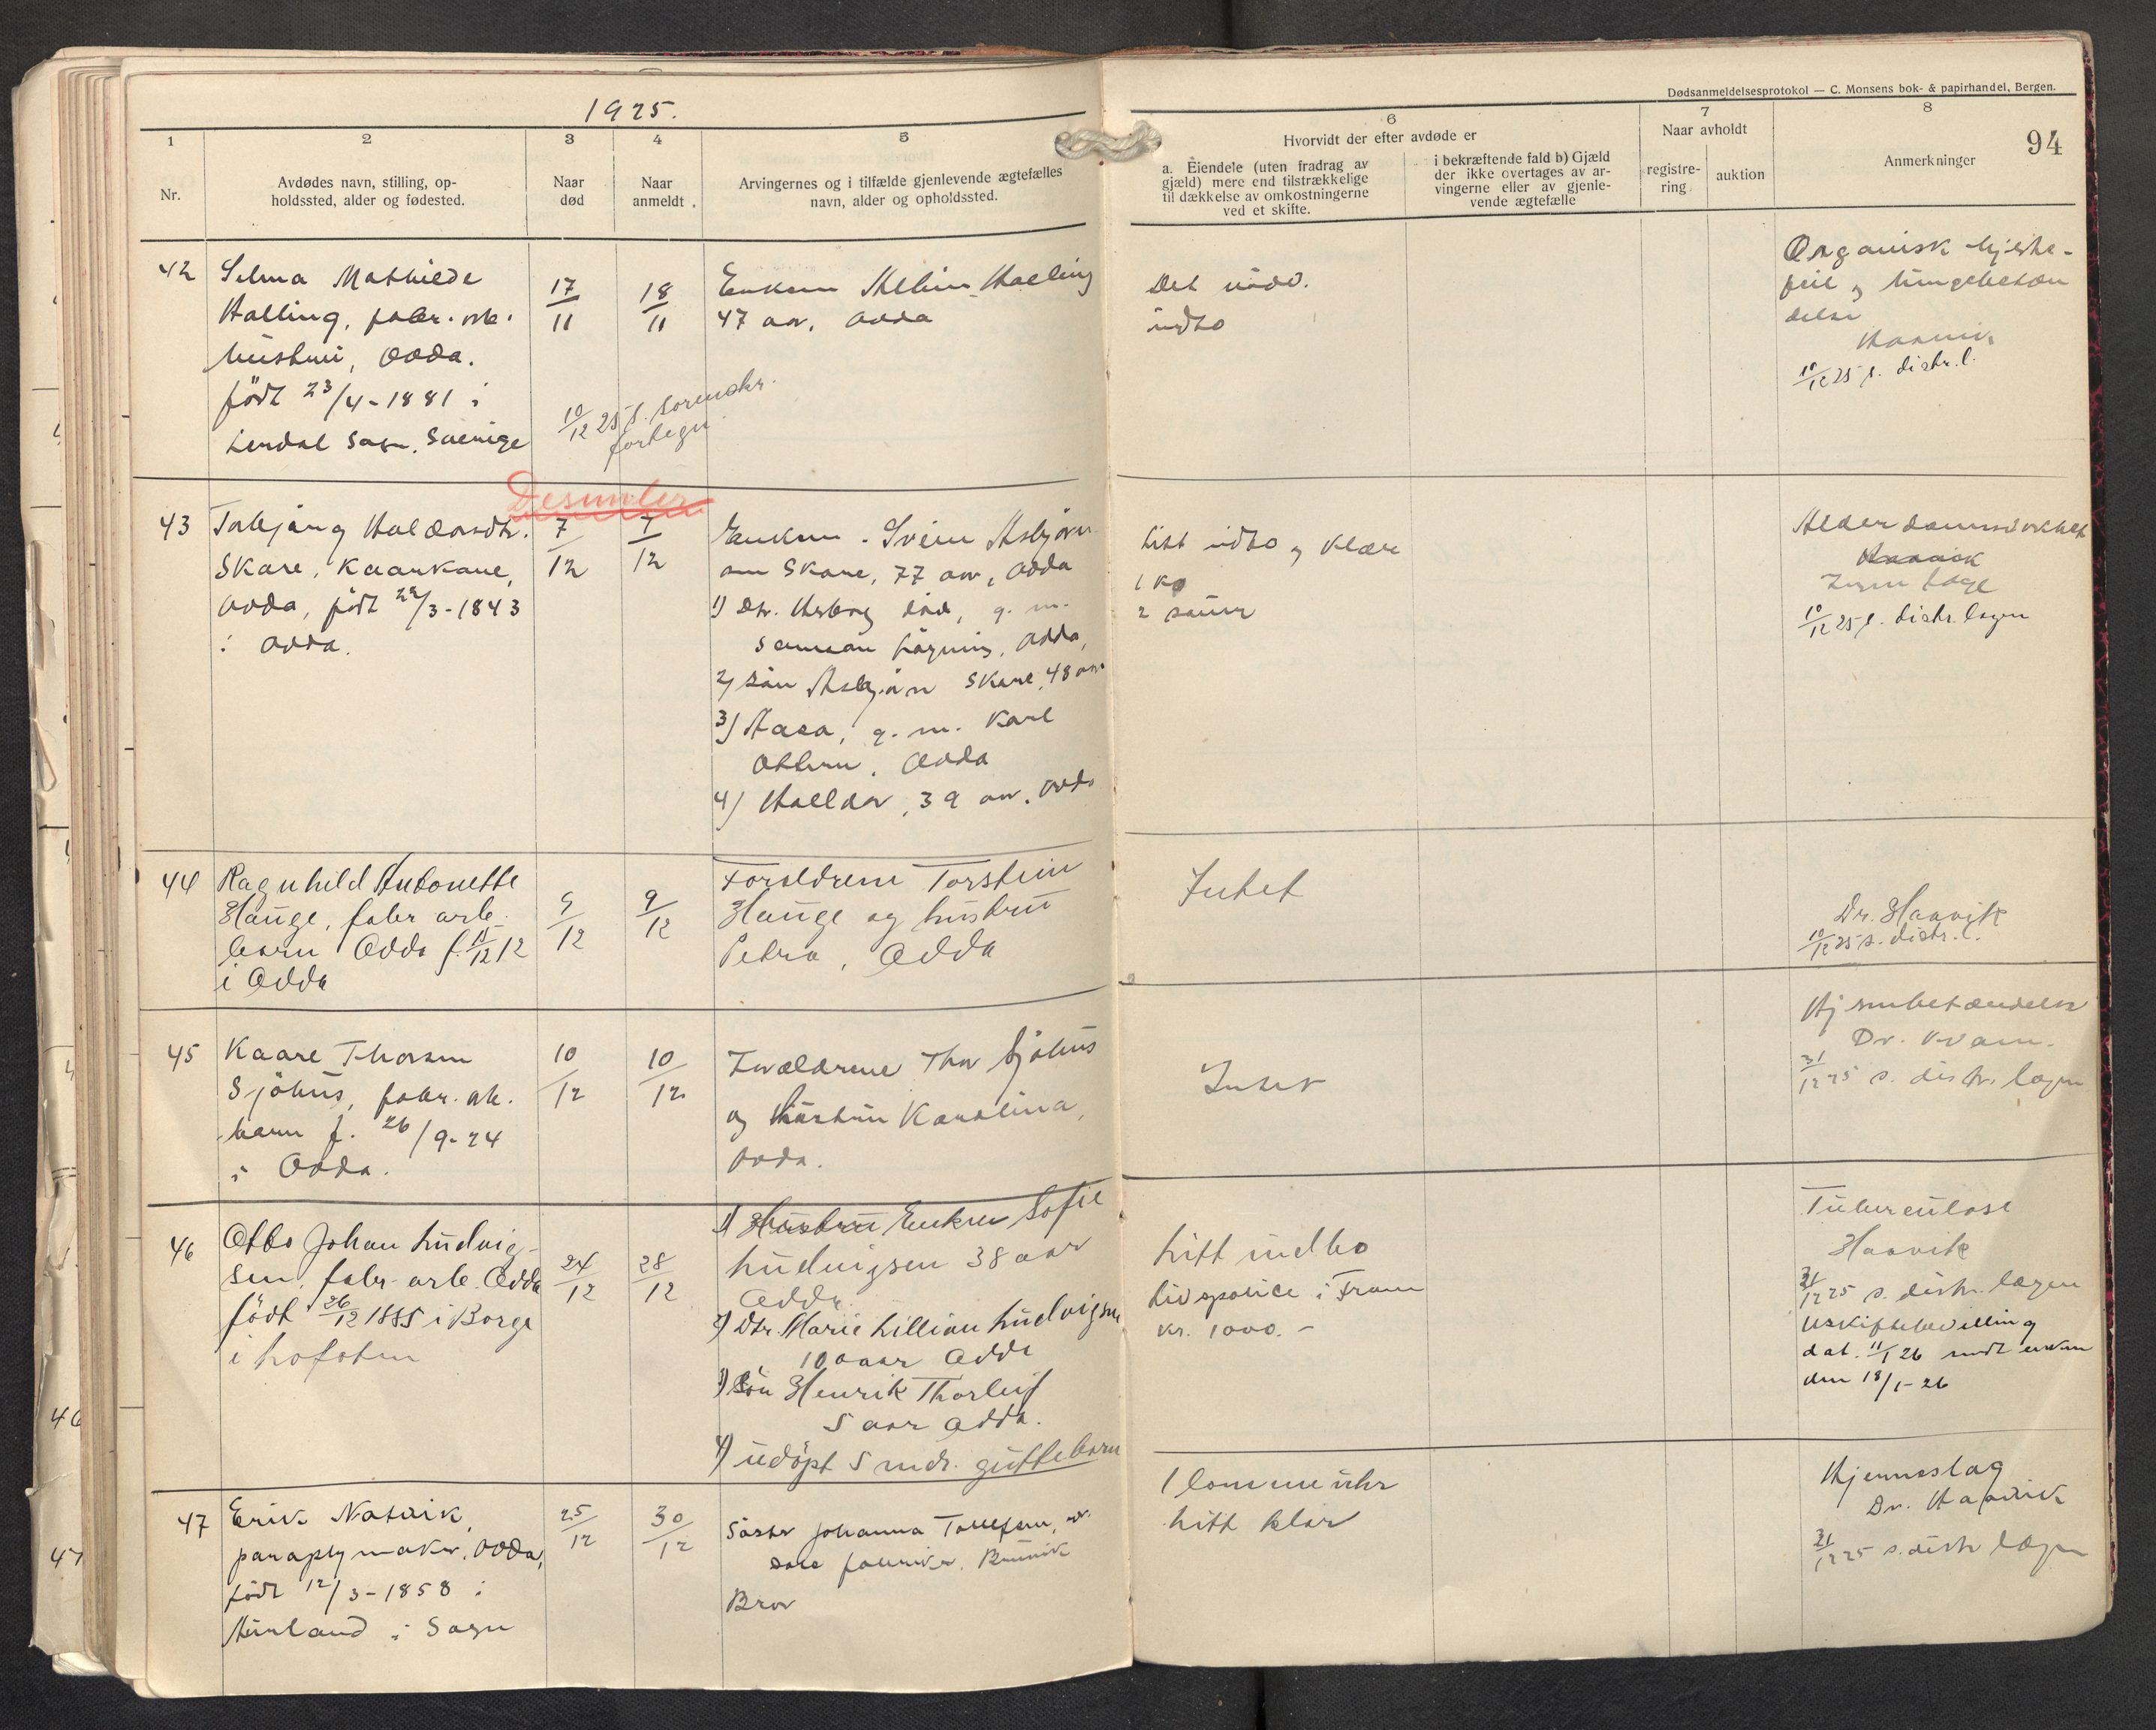 1925.
Dødsanmeldelsesprotokol — C. Monsens bok- & papirhandel, Bergen.
94
1
Nr.
2
Avdødes navn, stilling, op-
holdssted, alder og fødested.
3
Naar
død
4
Naar
anmeldt.
5
Arvingernes og i tilfælde gjenlevende ægtefælles
navn, alder og opholdssted.
6
Hvorvidt der efter avdøde er
a. Eiendele (uten fradrag av
gjæld) mere end tilstrækkelige
til dækkelse av omkostningerne
ved et skifte.
i bekræftende fald b) Gjæld
der ikke overtages av ar-
vingerne eller av gjenle-
vende ægtefælle
7
Naar avholdt
registre-
ring
auktion
8
Anmerkninger
42
Selma Mathilde
Halling, fabr. arb.
hustru, Odda.
född 23/4-1881 i
Sogn. Sverige
17/11
18/11
10/12 25 s. sorenskr.
fortegn.
Enkem Halling
47 aar, Odda
Det nödv.
indbo
Organisk hjerte-
feil og lungebetæn
delse
10/12 25 s. distr. l.
Desember
43
Torbjørg Haldorsdtr.
Skare, kaarkone,
Odda, född 22/3-1843
i Odda.
7/12
7/12
Enkem. Svein Asbjørn
sen Skare, 77 aar, Odda
1) Dtr. død, g. m.
Odda,
2) Sön Asbjörn Skare, 48 aar
3) Aasa, g. m. Karl
Odda
4) Halldor, 39 aar, Odda
Litt indbo og klær
1 ko
2 sauer
Alderdomssvakhet
Haavik
Ingen læge
10/12 25 s. distr. lægen
44
Ragnhild Antonette
Hauge, fabr arb.
barn Odda f. 15/12 12
i Odda
9/12
9/12
Foreldrene Torstein
Hauge og hustru
Petra, Odda
Intet
Dr. Haavik
10/12 25 s. distr. l.
45
Kaare Thorsen
Sjöhus, fabr. arb.
barn f. 26/9-24
i Odda.
10/12
10/12
Forældrene Thor Sjöhus
og hustru Karolina,
Odda.
Intet
Hjernebetændelse
Dr. Kvam.
31/12 25 s. distr. lægen
46
Otto Johan Ludvig-
sen, fabr arb. Odda
född 26/12 1885 i Borge
i Lofoten
24/12
28/12
1) Hustru Enken Sofie
Ludvigsen 38 aar
Odda
2) Dtr. Marie Lillian Ludvigsen
10 aar Odda
3) Sön Henrik Thorleif
5 aar Odda.
4) udöpt 5 mdr. guttebarn
Litt indbo
Livspolice i Fram
kr. 1000.-
Tuberculose
Haavik
31/12 25 s. distr. lægen
Uskiftebevilling
dat. 11/1 26 sendt enken
den 18/1-26
47
Erik Natvik,
paraplymaker, Odda,
född 12/3-1858 i
Aurland i Sogn
25/12
30/12
Söster Johanna Tollefsen,
Bror
1 lommeuhr
Litt klær
Hjerneslag
Dr. Haavik
31/12 25 s. distr lægen